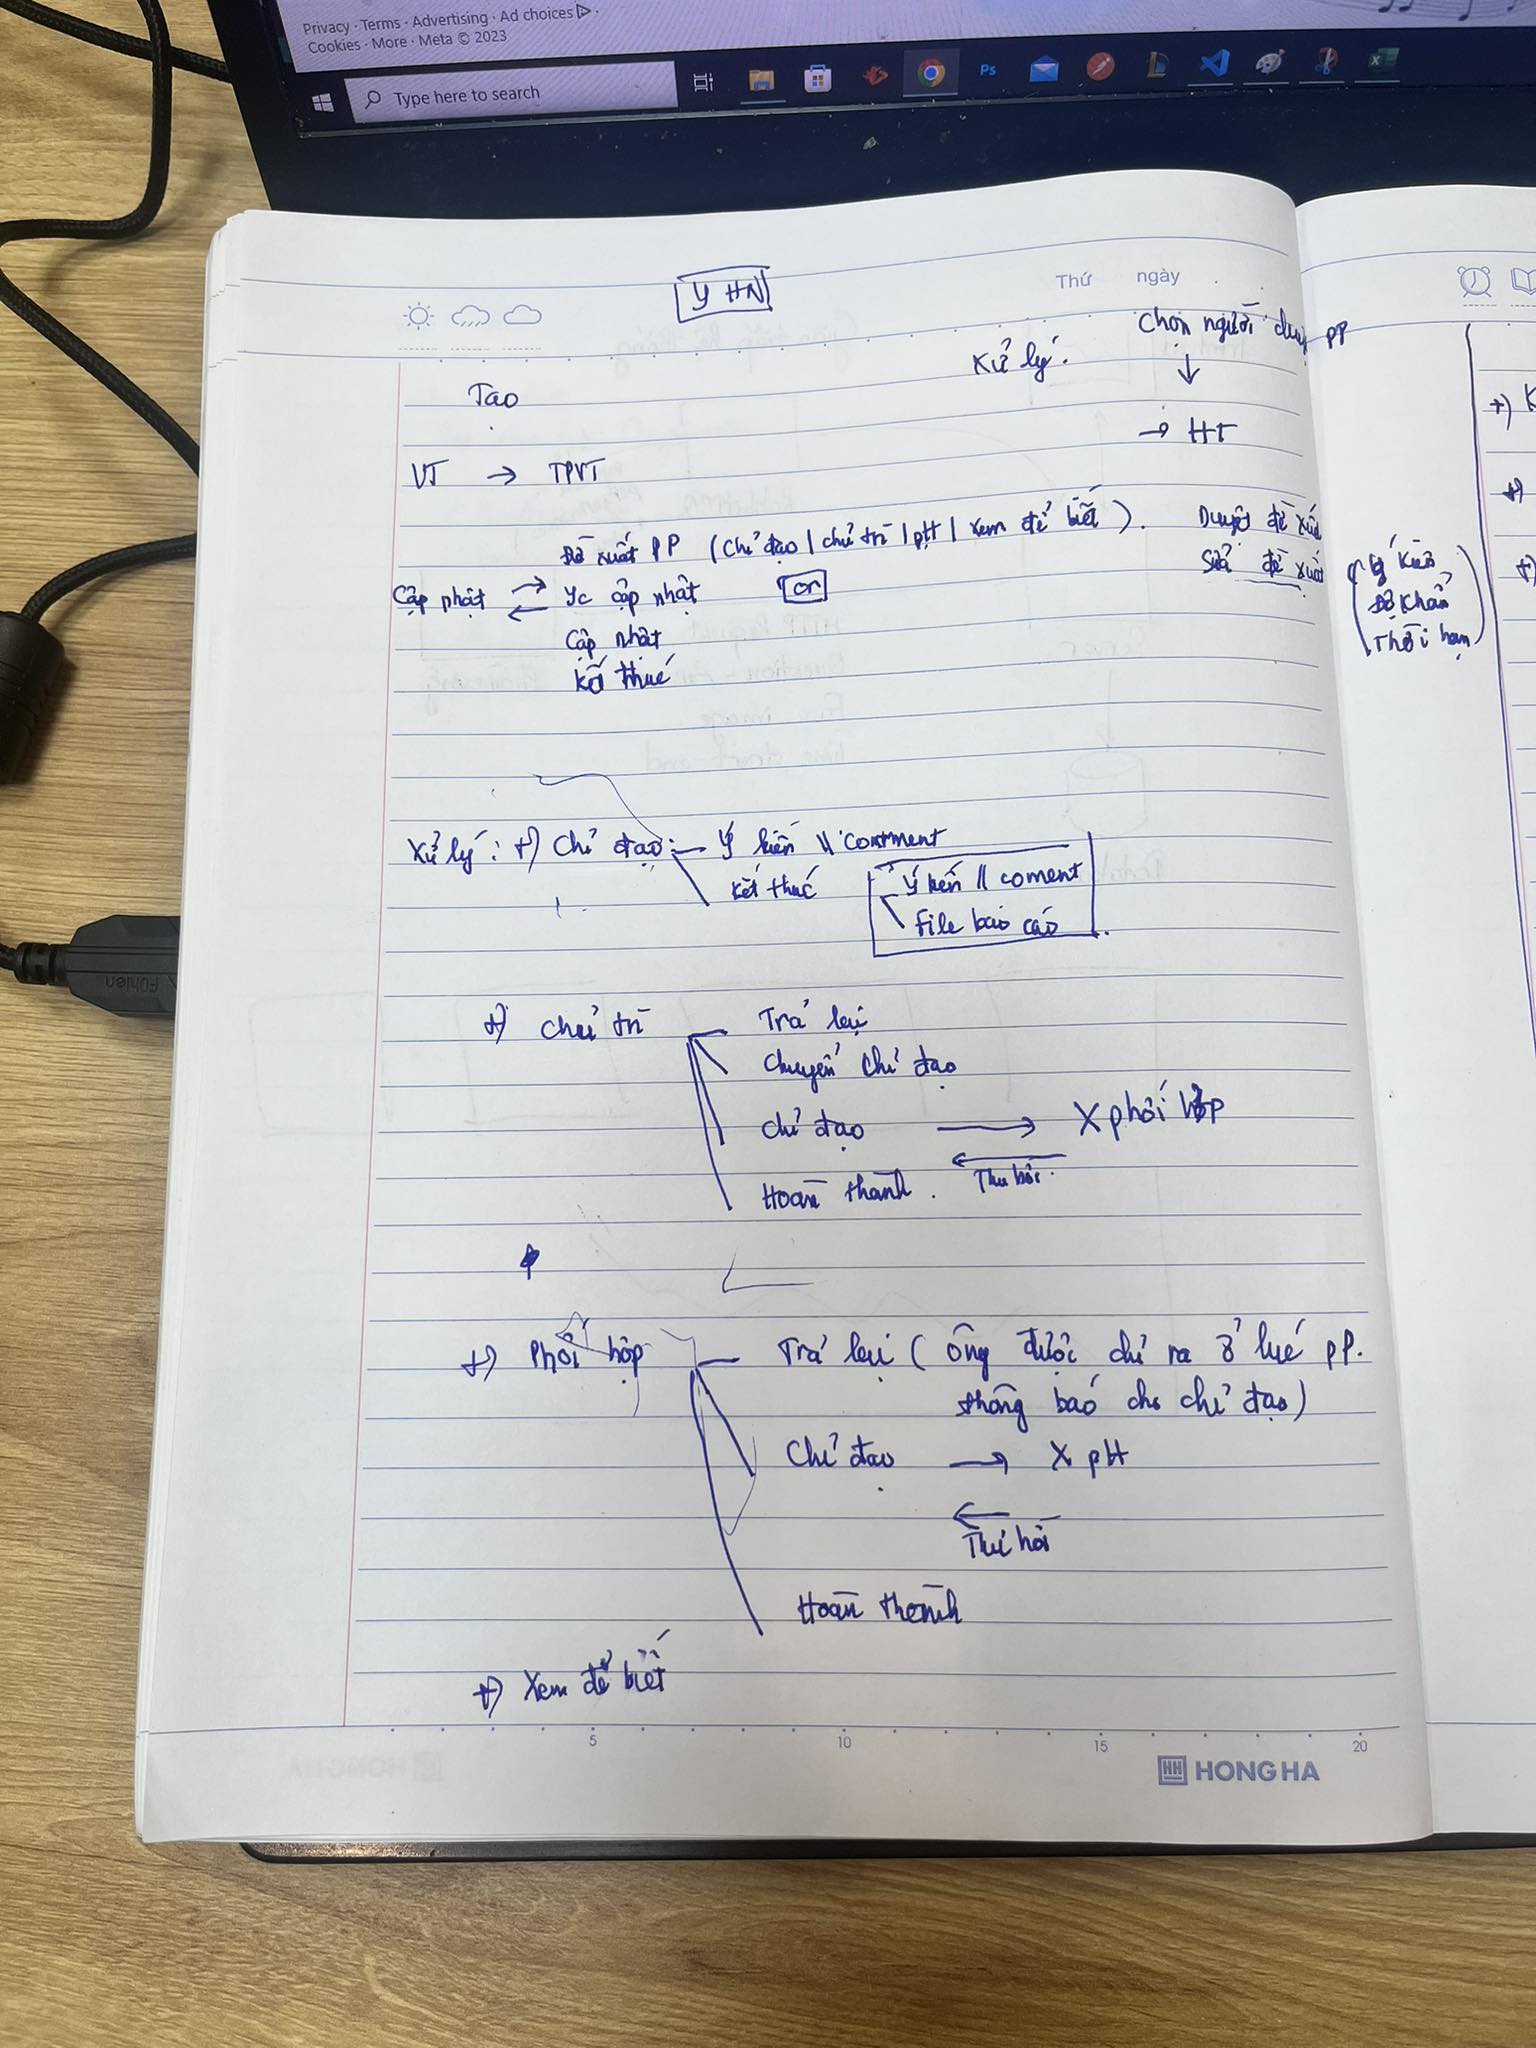 Privacy · Terms · Advertising · Ad choices ·
Cookies · More · Meta © 2023
Type here to search
Ps
Y HN
Thứ ngày
Chọn người duyệt PP
Xử lý.
Tạo
→ HT
VT → TPVT
Đề xuất PP (Chỉ đạo | chủ trì | pH | xem để biết).
Duyệt đề xuất
Sửa đề xuất
Ý kiến
Độ khẩn
Thời hạn
Cập nhật
Yc cập nhật
or
Cập nhật
Kết thúc
Xử lý: +) Chỉ đạo: Ý kiến || Comment
Kết thúc
Ý kiến || coment
File báo cáo
+) Chủ trì
Trả lại
Chuyển chỉ đạo
Chỉ đạo → X phối hợp
Thu hồi
Hoàn thành.
+) Phối hợp
Trả lại (ông được chỉ ra ở lúc PP.
thông báo cho chỉ đạo)
Chỉ đạo → X pH
Thu hồi
Hoàn thành
+) Xem để biết
5 10 15 20
HONG HA
Fühlen